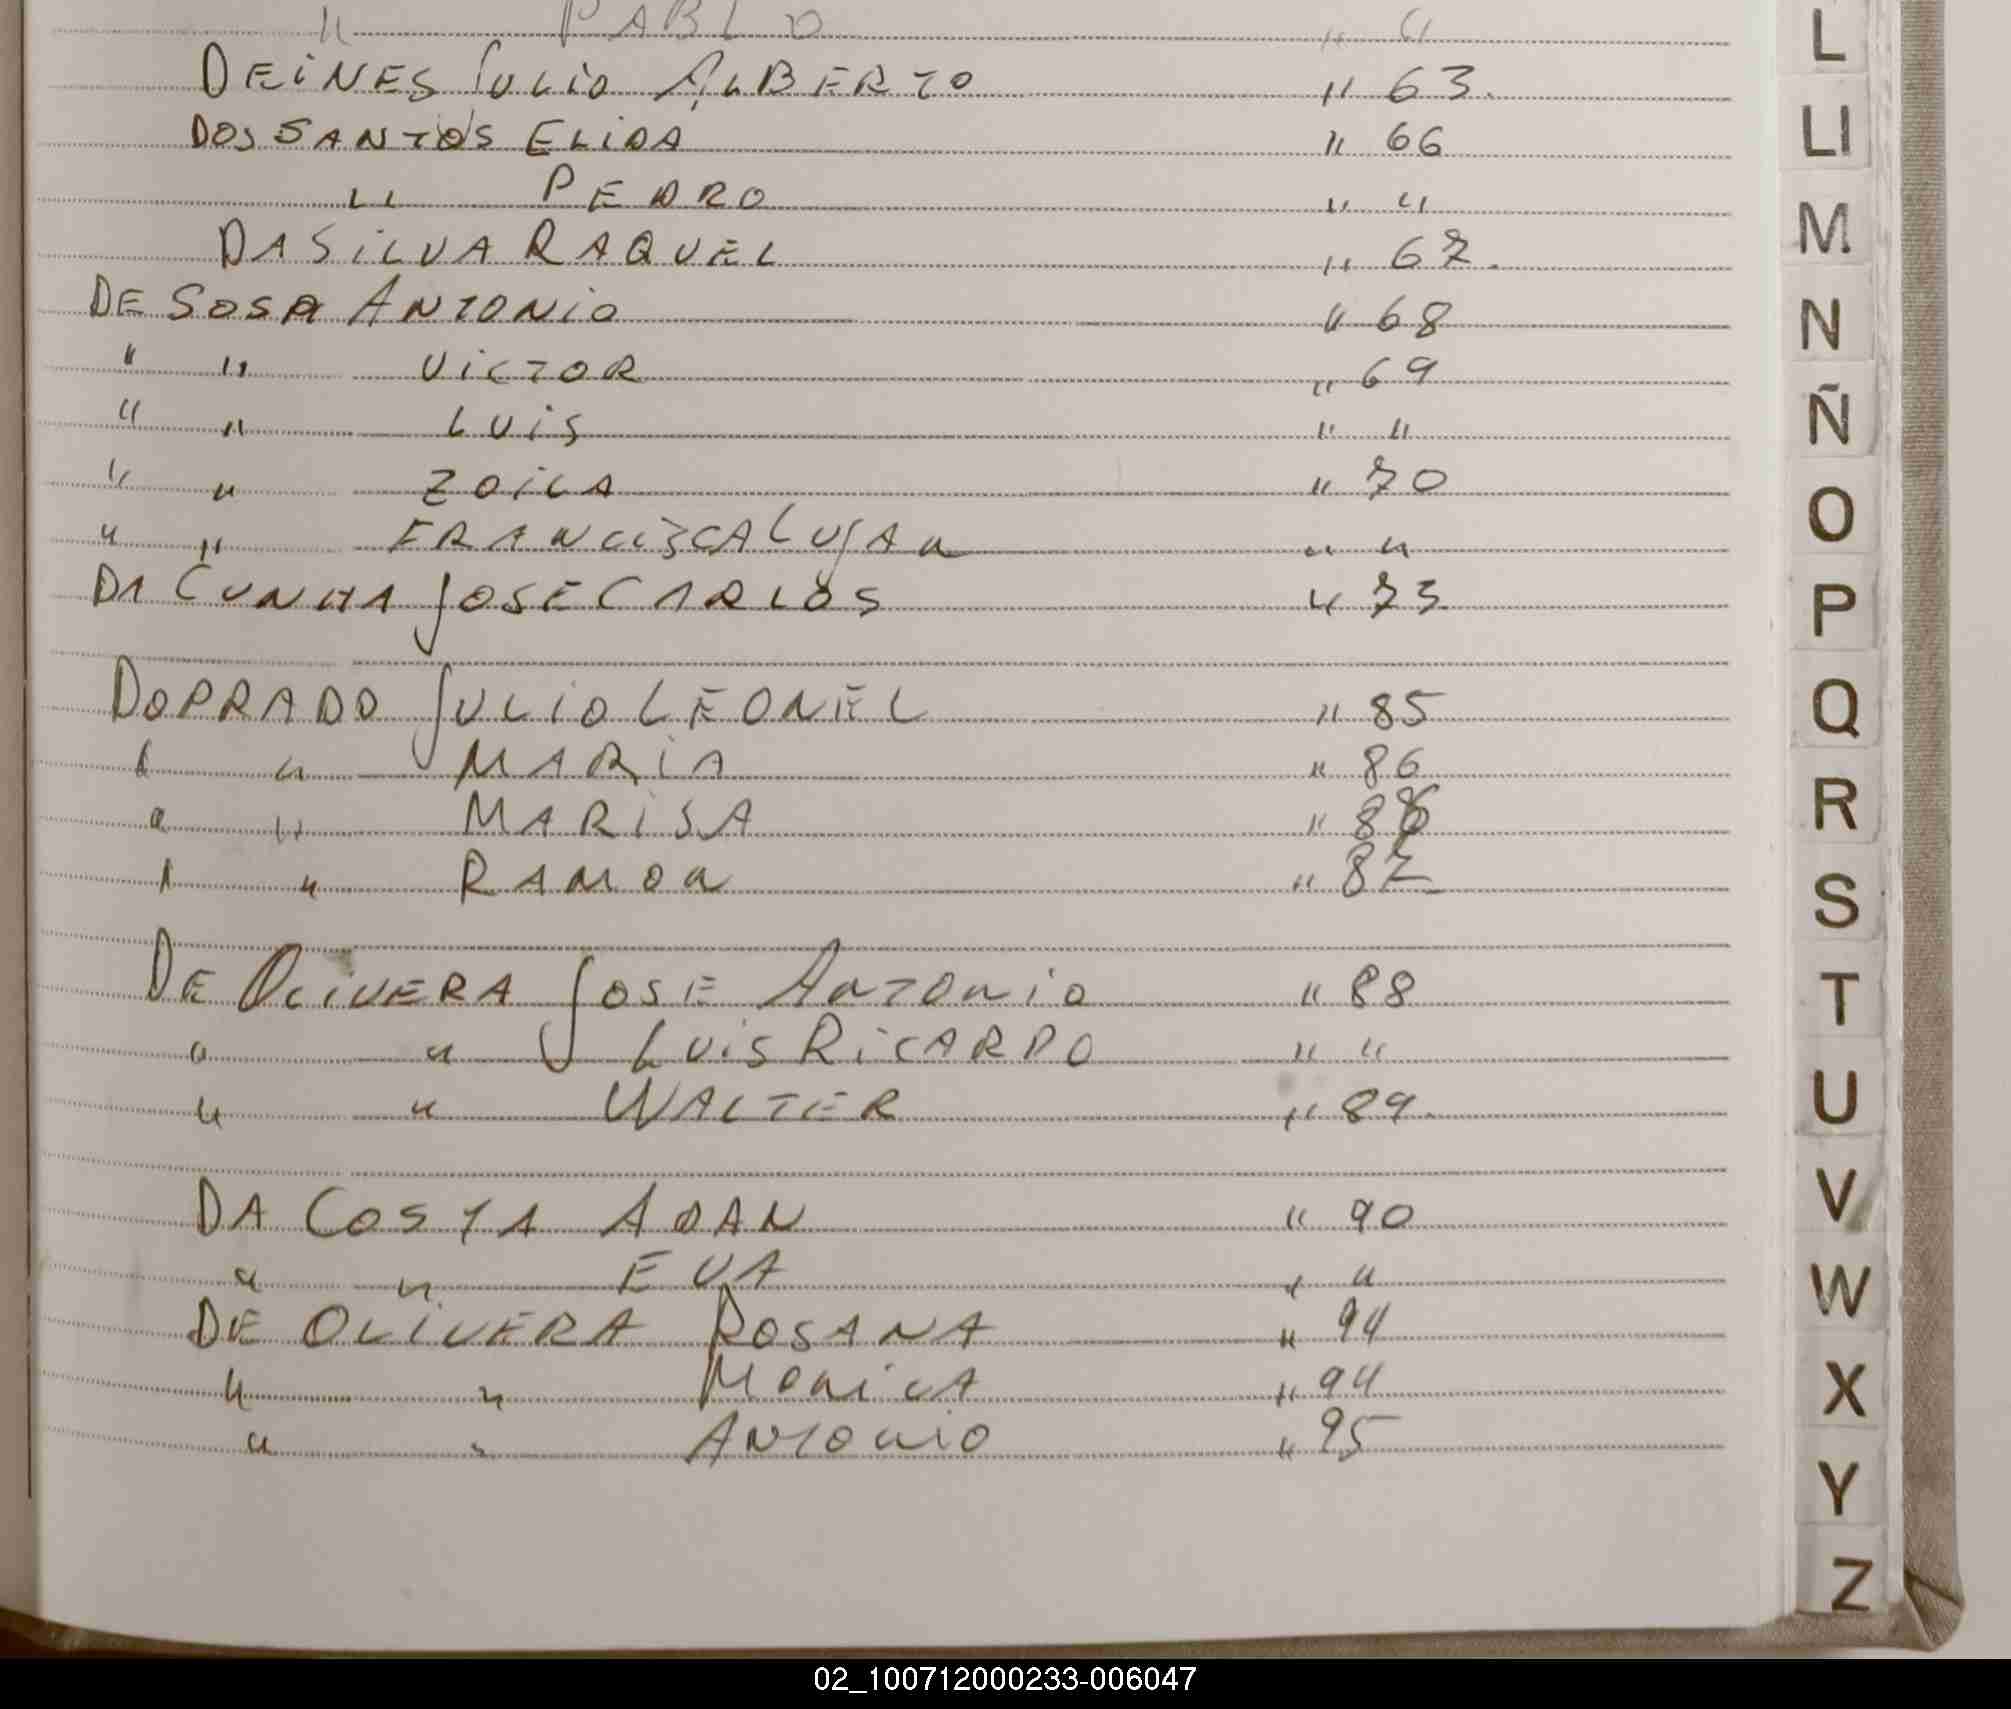 " PABLO " "
DEINES JULIO ALBERTO " 63.
DOS SANTOS ELIDA " 66
" PEDRO " "
DA SILVA RAQUEL " 67.
DE SOSA ANTONIO " 68
" " VICTOR " 69
" " LUIS " "
" " ZOILA " 70
" " FRANCISCA LUJAN " "
DA CUNHA JOSE CARLOS " 73
DOPRADO JULIO LEONEL " 85
" " MARIA " 86
" " MARISA " 86
" " RAMON " 87
DE OLIVERA JOSE ANTONIO " 88
" " LUIS RICARDO " "
" " WALTER " 89.
DA COSTA ADAN " 90
" " EVA " "
DE OLIVERA ROSANA " 94
" " MONICA " 94
" " ANTONIO " 95
L
Ll
M
N
Ñ
O
P
Q
R
S
T
U
V
W
X
Y
Z
02_100712000233-006047